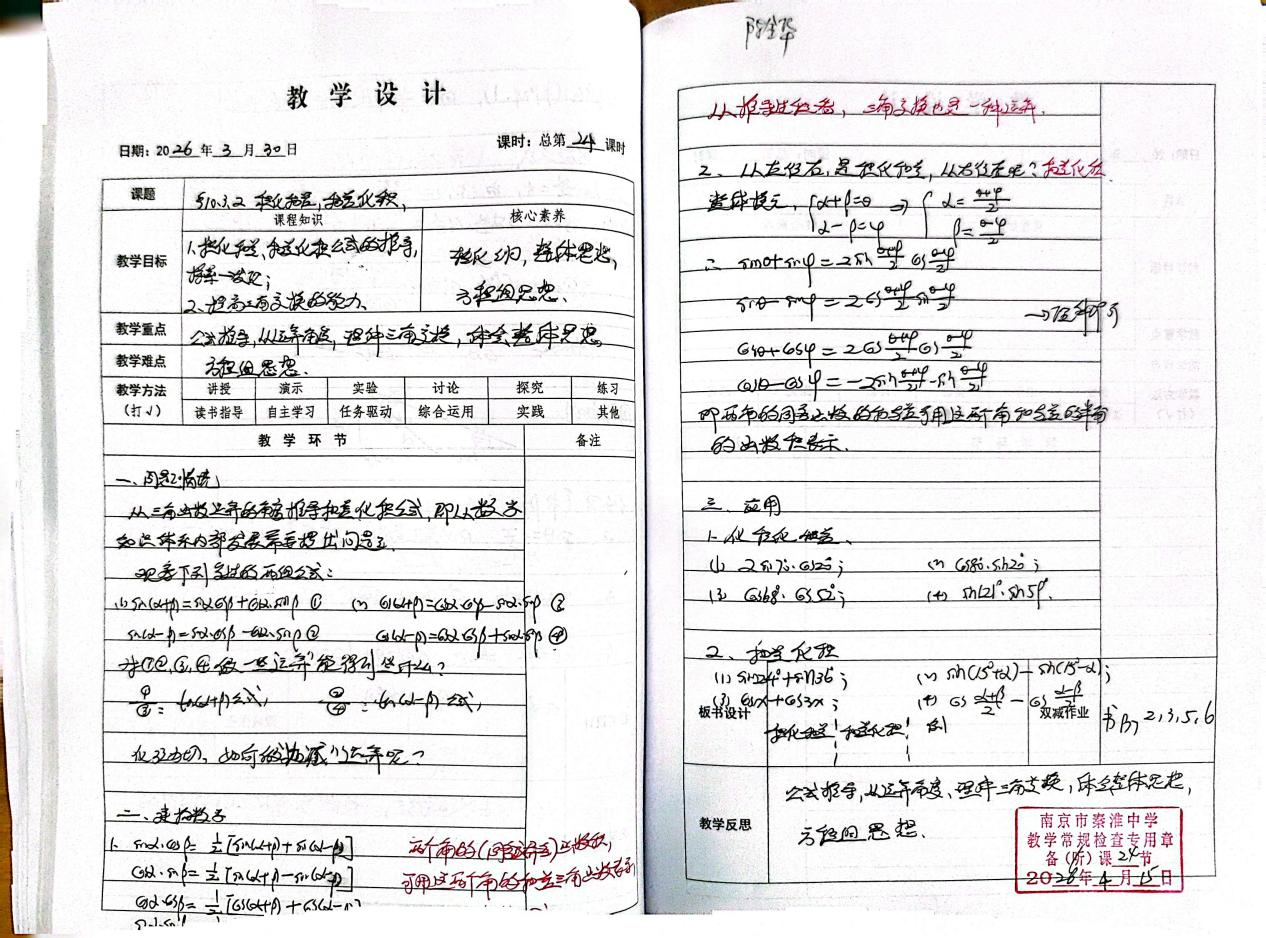 教 学 设 计
日期：2026年3月30日
课时：总第24课时
课题
§10.3.2 积化和差，和差化积，
教学目标
课程知识
核心素养
1、积化和差、和差化积公式的推导，
2、提高三角变换的能力、
转化之归，整体思想，
方程组思想、
教学重点
公式推导，从运算角度，理解三角变换，体会整体思想
教学难点
方程组思想、
教学方法
（打√）
讲授 演示 实验 讨论 探究 练习
读书指导 自主学习 任务驱动 综合运用 实践 其他
教 学 环 节
备注
一、问题情境
从三角函数运算的角度推导和差化积公式，即从数学
知识体系内部发展需要提出问题、
观察下列学过的两组公式：
(1) sin(α+β)=sinα·cosβ+cosα·sinβ ① (2) cos(α+β)=cosα·cosβ-sinα·sinβ ③
sin(α-β)=sinα·cosβ-cosα·sinβ ② cos(α-β)=cosα·cosβ+sinα·sinβ ④
对①②,③,④做一些运算能得到些什么？
①/③：tan(α+β)公式， ②/④：tan(α-β)公式，
化弦为切，如何做“加减”运算呢？
二、建构数学
1. sinα·cosβ=1/2[sin(α+β)+sin(α-β)]
cosα·sinβ=1/2[sin(α+β)-sin(α-β)]
cosα·cosβ=1/2[cos(α+β)+cos(α-β)]
两个角的(同名或异名)函数积，
可用这两个角的和差三角函数表示
从推导过程看，三角变换也是一种运算.
2、从左往右，是积化和差，从右往左呢？和差化积
整体换元，{α+β=θ α-β=φ ⇒ {α=(θ+φ)/2 β=(θ-φ)/2
∴ sinθ+sinφ=2sin(θ+φ)/2 cos(θ-φ)/2
sinθ-sinφ=2cos(θ+φ)/2 sin(θ-φ)/2
cosθ+cosφ=2cos(θ+φ)/2 cos(θ-φ)/2
cosθ-cosφ=-2sin(θ+φ)/2·sin(θ-φ)/2
即两角的同名函数的和与差可用这两个角和与差的半角
的函数积表示.
三、应用
1、化积化和差、
(3) cos68°·cos52°; (4) sin121°·sin59°.
2、和差化积
(1) sin24°+sin36°; (2) sin(15°+α)-sin(15°-α);
(3) cosx+cos3x; (4) cos(α+β)/2-cos(α-β)/2
板书设计
积化和差 和差化积 例
双减作业
书P 2,3,5,6
教学反思
公式推导，从运算角度、理解三角变换，体会整体思想，
方程组思想、
南京市秦淮中学
教学常规检查专用章
备（听）课24节
2026年4月15日